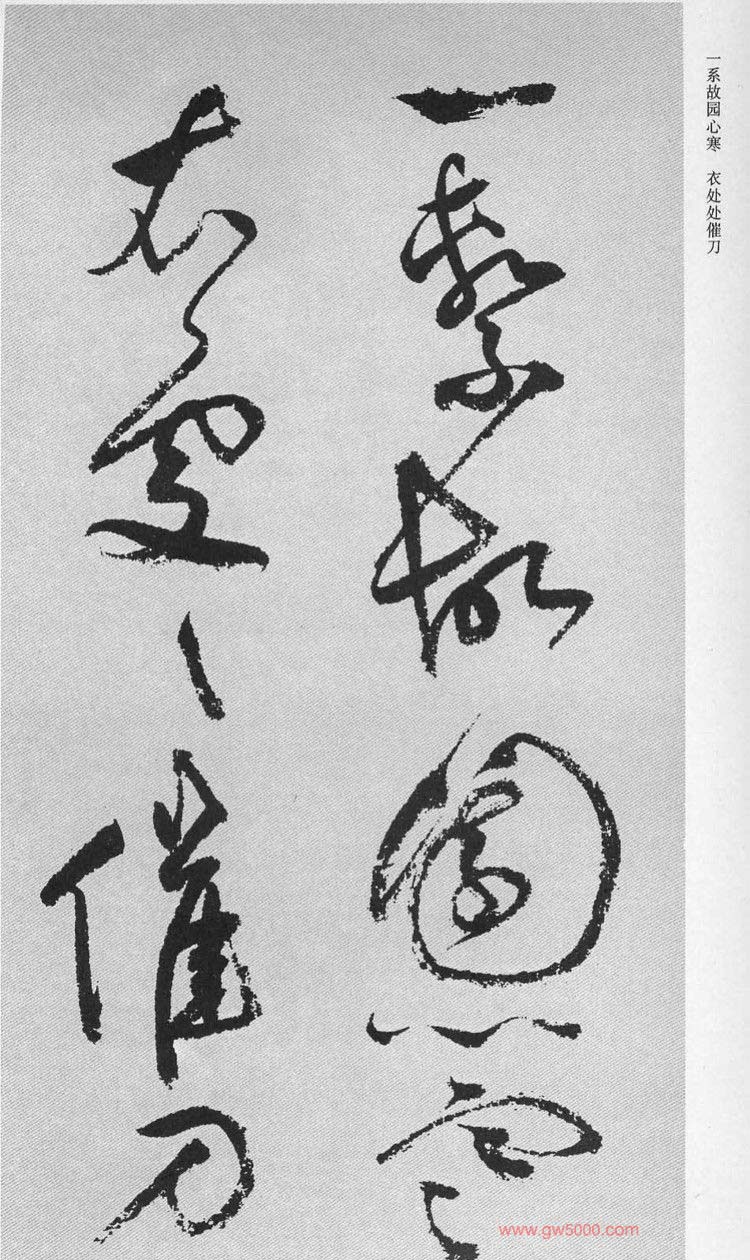 一繫故園心寒
衣處〻催刀
一系故园心寒　衣处处催刀
www.gw5000.com